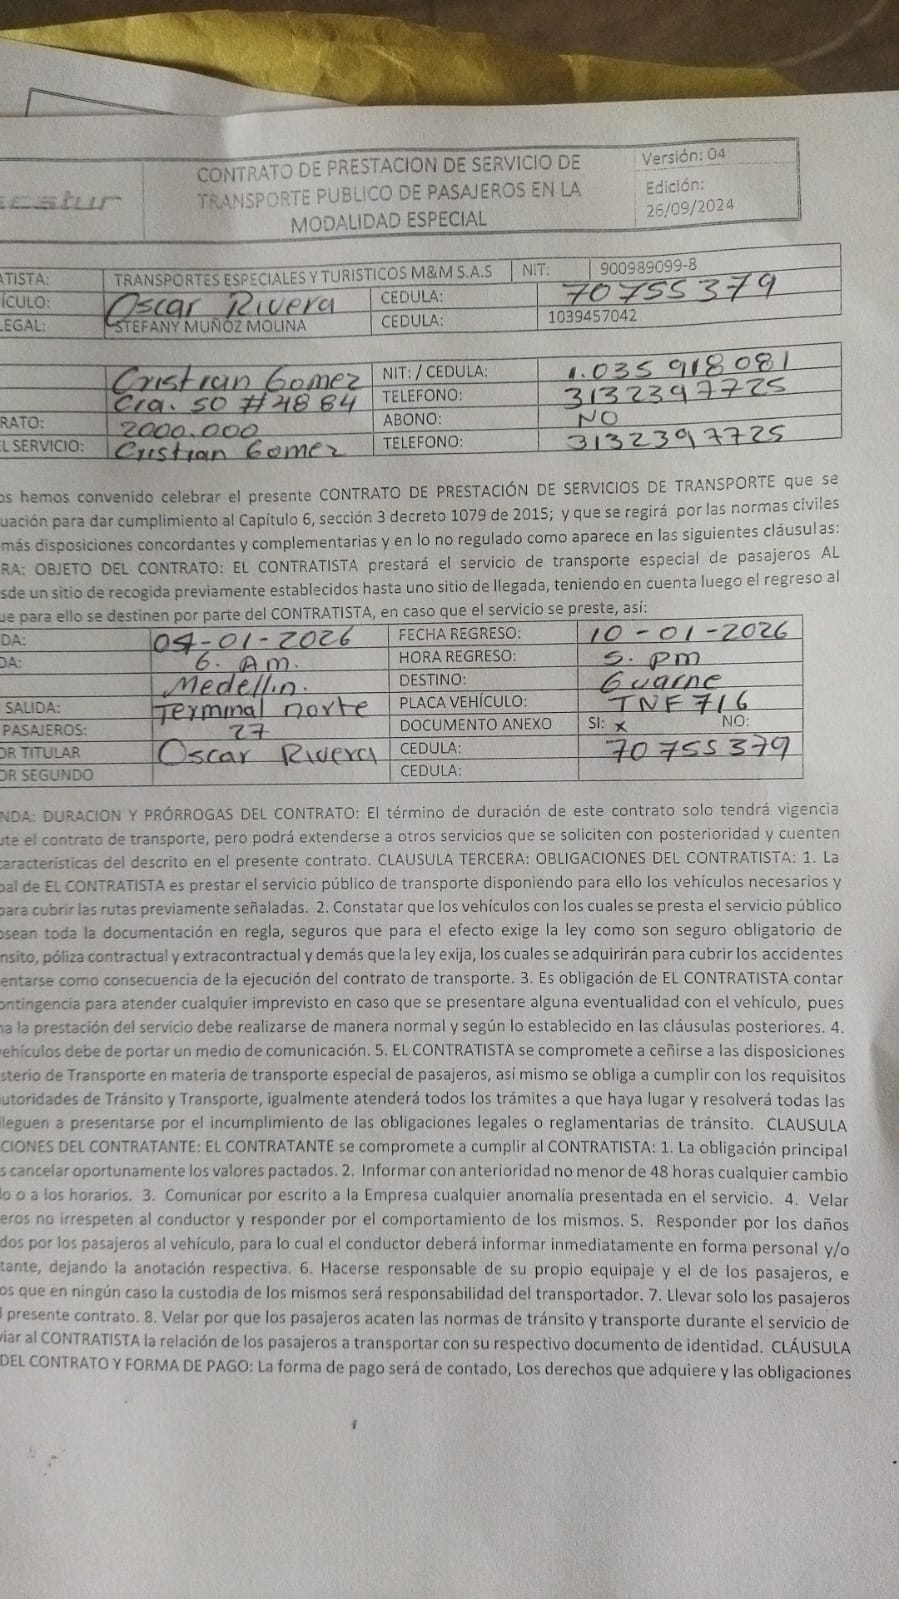 ecstur
CONTRATO DE PRESTACION DE SERVICIO DE
TRANSPORTE PUBLICO DE PASAJEROS EN LA
MODALIDAD ESPECIAL
Versión: 04
Edición:
26/09/2024
ATISTA: TRANSPORTES ESPECIALES Y TURISTICOS M&M S.A.S NIT: 900989099-8
ÍCULO: Oscar Rivera CEDULA: 70755379
LEGAL: STEFANY MUÑOZ MOLINA CEDULA: 1039457042
Cristian Gomez NIT: / CEDULA: 1.035 918 081
Cra. 50 #4884 TELEFONO: 3132397725
RATO: 2000.000 ABONO: NO
EL SERVICIO: Cristian Gomez TELEFONO: 3132397725
os hemos convenido celebrar el presente CONTRATO DE PRESTACIÓN DE SERVICIOS DE TRANSPORTE que se
uación para dar cumplimiento al Capítulo 6, sección 3 decreto 1079 de 2015; y que se regirá por las normas civiles
más disposiciones concordantes y complementarias y en lo no regulado como aparece en las siguientes cláusulas:
RA: OBJETO DEL CONTRATO: EL CONTRATISTA prestará el servicio de transporte especial de pasajeros AL
sde un sitio de recogida previamente establecidos hasta uno sitio de llegada, teniendo en cuenta luego el regreso al
ue para ello se destinen por parte del CONTRATISTA, en caso que el servicio se preste, así:
DA: -01-2026 FECHA REGRESO: 10-01-2026
DA: 6. Am. HORA REGRESO: 5. pm
Medellin. DESTINO: Guarne
SALIDA: Terminal norte PLACA VEHÍCULO: TNF716
PASAJEROS: 27 DOCUMENTO ANEXO SI: x NO:
OR TITULAR Oscar Rivera CEDULA: 70755379
OR SEGUNDO CEDULA:
NDA: DURACION Y PRÓRROGAS DEL CONTRATO: El término de duración de este contrato solo tendrá vigencia
ute el contrato de transporte, pero podrá extenderse a otros servicios que se soliciten con posterioridad y cuenten
características del descrito en el presente contrato. CLAUSULA TERCERA: OBLIGACIONES DEL CONTRATISTA: 1. La
pal de EL CONTRATISTA es prestar el servicio público de transporte disponiendo para ello los vehículos necesarios y
para cubrir las rutas previamente señaladas. 2. Constatar que los vehículos con los cuales se presta el servicio público
osean toda la documentación en regla, seguros que para el efecto exige la ley como son seguro obligatorio de
nsito, póliza contractual y extracontractual y demás que la ley exija, los cuales se adquirirán para cubrir los accidentes
entarse como consecuencia de la ejecución del contrato de transporte. 3. Es obligación de EL CONTRATISTA contar
ontingencia para atender cualquier imprevisto en caso que se presentare alguna eventualidad con el vehículo, pues
na la prestación del servicio debe realizarse de manera normal y según lo establecido en las cláusulas posteriores. 4.
vehículos debe de portar un medio de comunicación. 5. EL CONTRATISTA se compromete a ceñirse a las disposiciones
sterio de Transporte en materia de transporte especial de pasajeros, así mismo se obliga a cumplir con los requisitos
utoridades de Tránsito y Transporte, igualmente atenderá todos los trámites a que haya lugar y resolverá todas las
lleguen a presentarse por el incumplimiento de las obligaciones legales o reglamentarias de tránsito. CLAUSULA
CIONES DEL CONTRATANTE: EL CONTRATANTE se compromete a cumplir al CONTRATISTA: 1. La obligación principal
s cancelar oportunamente los valores pactados. 2. Informar con anterioridad no menor de 48 horas cualquier cambio
lo o a los horarios. 3. Comunicar por escrito a la Empresa cualquier anomalía presentada en el servicio. 4. Velar
eros no irrespeten al conductor y responder por el comportamiento de los mismos. 5. Responder por los daños
dos por los pasajeros al vehículo, para lo cual el conductor deberá informar inmediatamente en forma personal y/o
tante, dejando la anotación respectiva. 6. Hacerse responsable de su propio equipaje y el de los pasajeros, e
os que en ningún caso la custodia de los mismos será responsabilidad del transportador. 7. Llevar solo los pasajeros
l presente contrato. 8. Velar por que los pasajeros acaten las normas de tránsito y transporte durante el servicio de
viar al CONTRATISTA la relación de los pasajeros a transportar con su respectivo documento de identidad. CLÁUSULA
DEL CONTRATO Y FORMA DE PAGO: La forma de pago será de contado, Los derechos que adquiere y las obligaciones